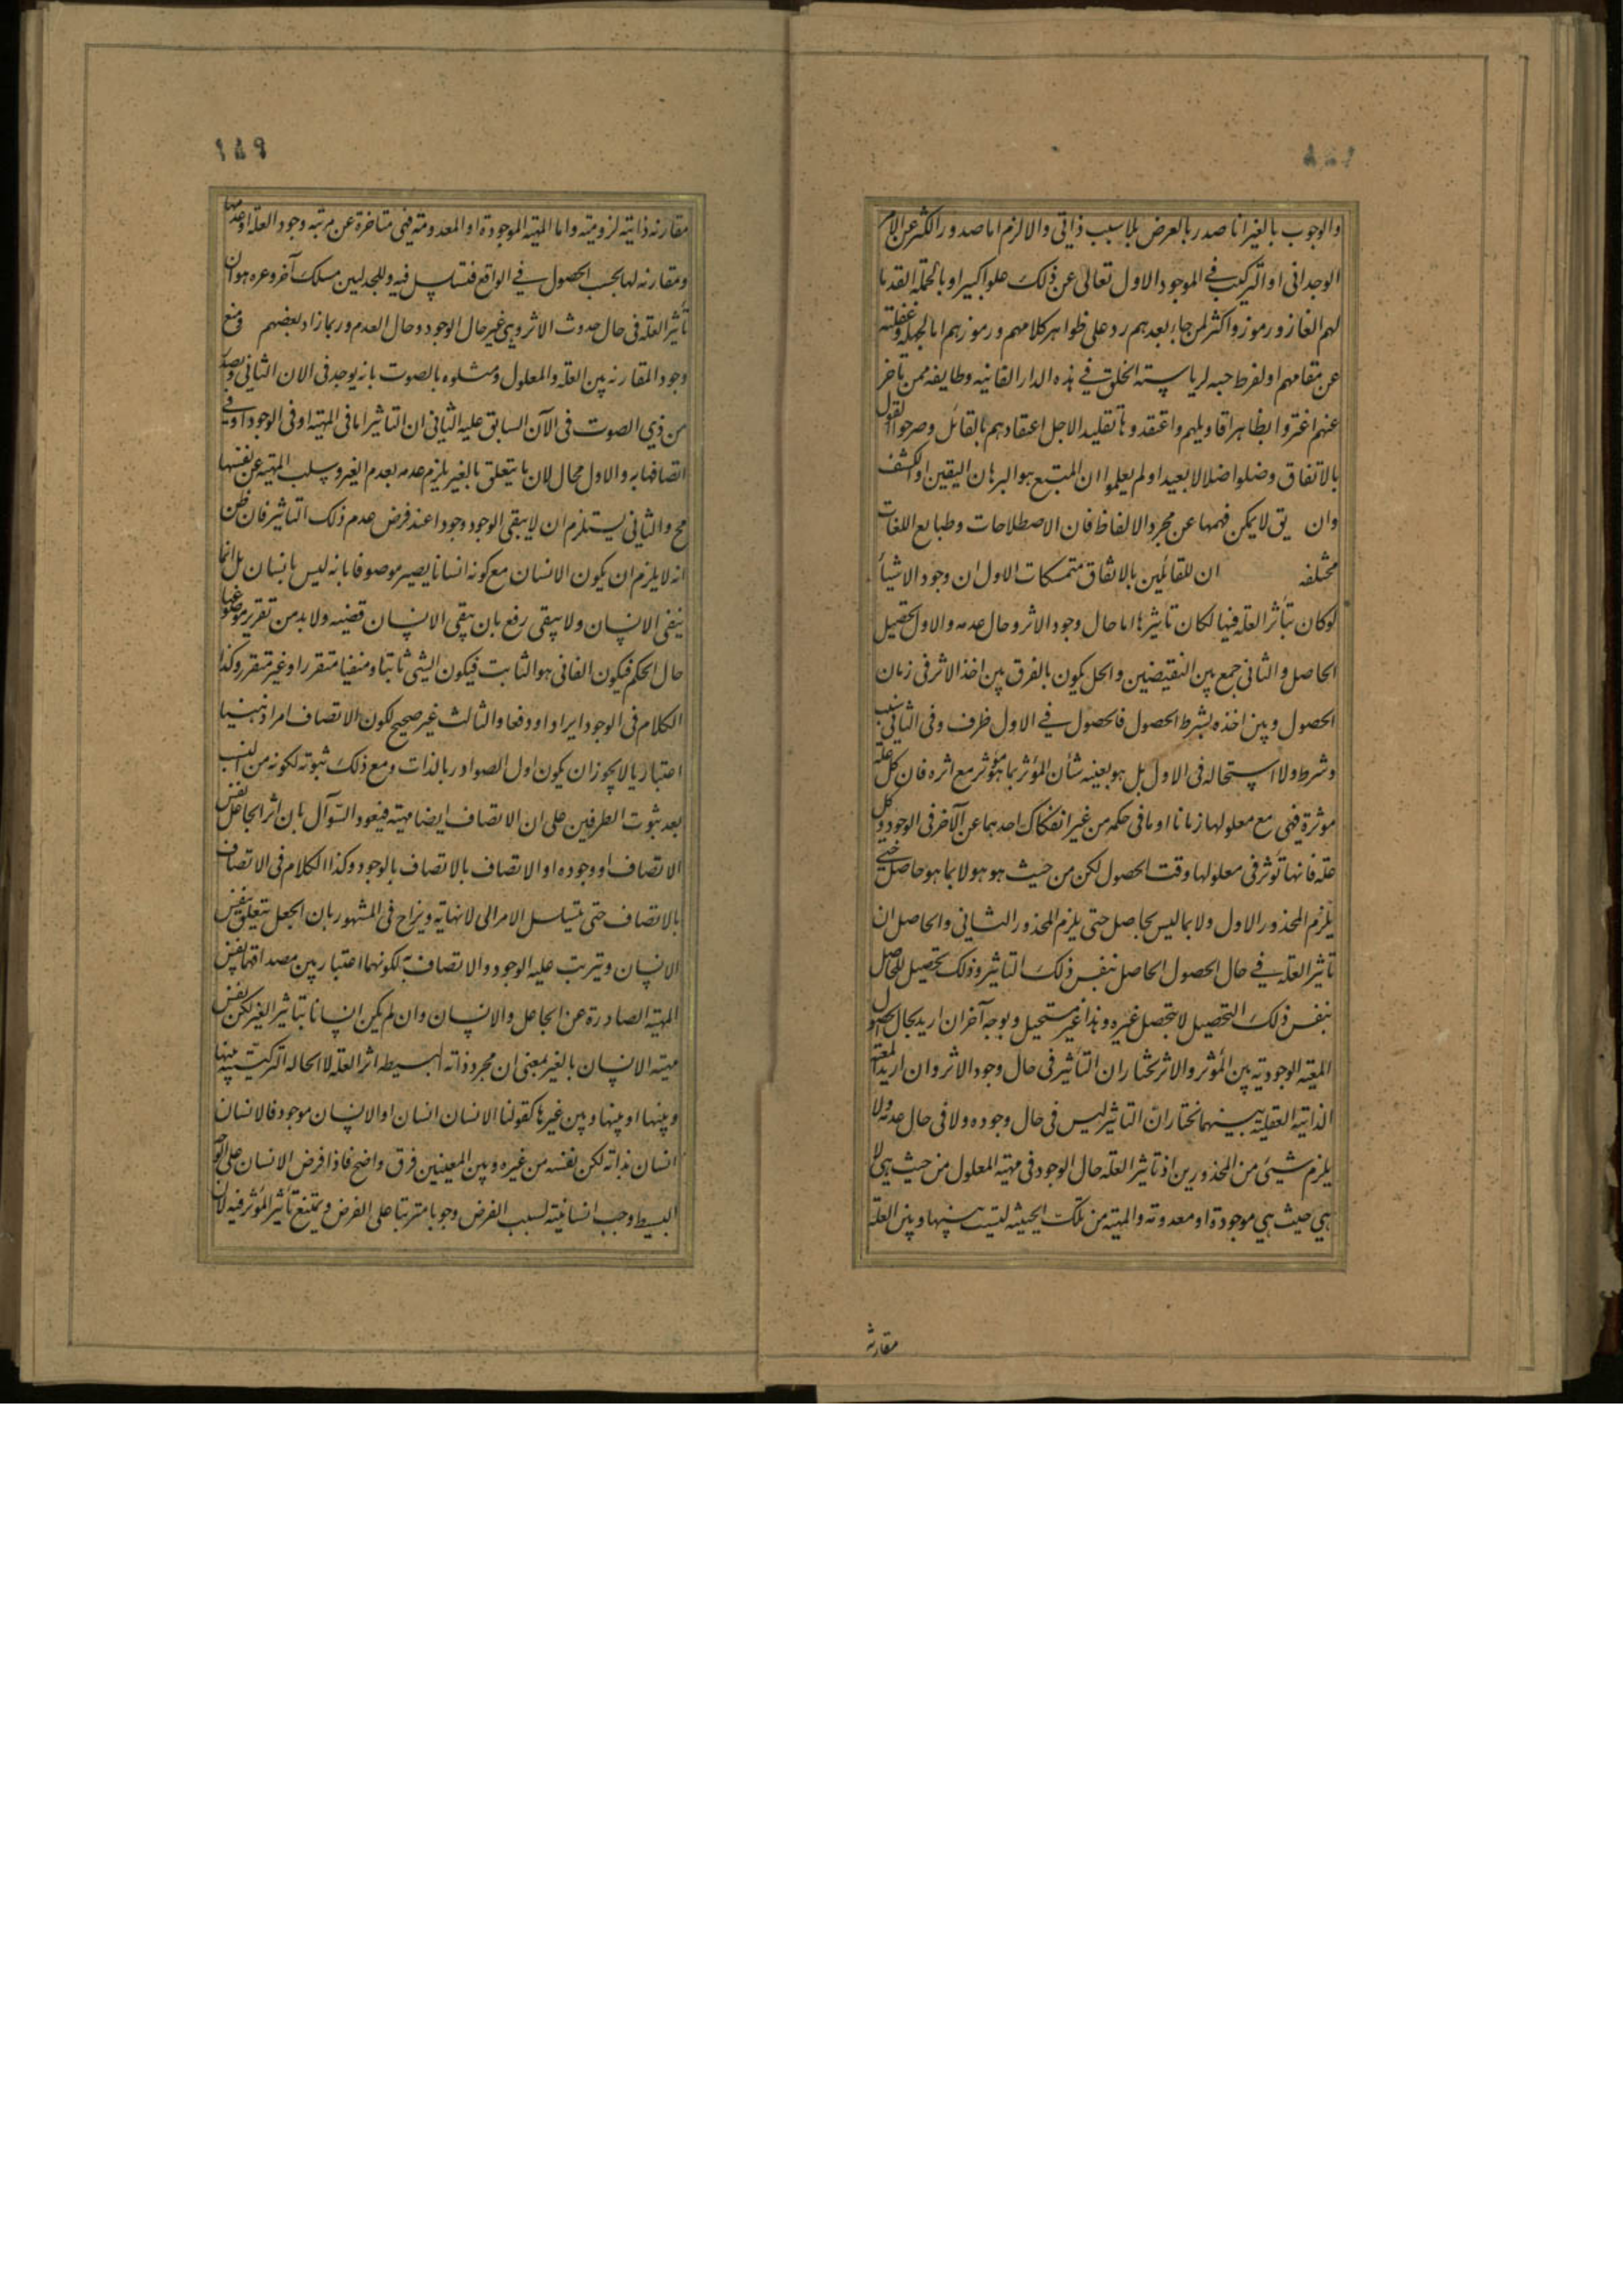 والوجوب بالغير انما صدر بالعرض بلا سبب ذاتي والا لزم اما صدور الكثير عن الامر
الوحداني او التركيب في الموجود الاول تعالى عن ذلك علوا كبيرا وبالجملة القدما
لهم الغاز ورموز واكثر من جاء بعدهم رد على ظواهر كلامهم ورموزهم اما لجهله وغفلته
عن مقامهم او لفرط حبه لرياسة الخلق في هذه الدار الفانية وطايفة ممن تاخر
عنهم اغتروا بظاهر اقاويلهم واعتقدوها تقليدا لاجل اعتقادهم بالقائل وصرحوا القول
بالاتفاق وضلوا ضلالا بعيدا ولم يعلموا ان المتبع هو البرهان اليقين او الكشف
وان يق لا يمكن فهمها عن مجرد الالفاظ فان الاصطلاحات وطبايع اللغات
مختلفة ان للقائلين بالاتفاق متمسكات الاول ان وجود الاشياء
لو كان بتأثر العلة فيها لكان تأثيرها اما حال وجود الاثر وحال عدمه والاول تحصيل
الحاصل والثاني جمع بين النقيضين والحل يكون بالفرق بين اخذ الاثر في زمان
الحصول وبين اخذه بشرط الحصول فالحصول في الاول ظرف وفي الثاني سبب
وشرط ولا استحالة في الاول بل هو بعينه شأن المؤثر بما هو مؤثر مع اثره فان كل علة
موثرة فهي مع معلولها زمانا او ما في حكمه من غير انفكاك احدهما عن الآخر في الوجود وكل
علة فانها توثر في معلولها وقت الحصول لكن من حيث هو هو لا بما هو حاصل حتى
يلزم المحذور الاول ولا بما ليس بحاصل حتى يلزم المحذور الثاني والحاصل ان
تاثير العلة في حال الحصول الحاصل بنفس ذلك التاثير وذلك تحصيل للحاصل
بنفس ذلك التحصيل لا بتحصل غيره وهذا غير مستحيل وبوجه آخر ان اريد بحال الحصول
المعية الوجودية بين المؤثر والاثر نختار ان التأثير في حال وجود الاثر وان اريد المعية
الذاتية العقلية بينهما نختار ان التاثير ليس في حال وجوده ولا في حال عدمه ولا
يلزم شيئ من المحذورين اذ تاثير العلة حال الوجود في مهية المعلول من حيث هي لا
هي حيث هي موجودة او معدومة والمهية من تلك الحيثية ليست بينها وبين العلة
مقارنة
مقارنة ذاتية لزومية واما المهية الموجودة او المعدومة فهي متاخرة عن مرتبة وجود العلة او عدمها
ومقارنة لها بحسب الحصول في الواقع فتسايل فيه وللجدليين مسلك آخر وعره هو ان
تأثير العلة في حال حدوث الاثر وهي غير حال الوجود وحال العدم وربما زاد بعضهم ومنع
وجود المقارنة بين العلة والمعلول ومثلوه بالصوت بانه يوجد في الان الثاني وبصدر
من ذي الصوت في الآن السابق عليه الثاني ان التاثير اما في المهية او في الوجود او في
اتصافها به والاول محال لان ما يتعلق بالغير يلزم عدمه بعدم الغير وسلب المهية عن نفسها
مح والثاني يستلزم ان لا يبقى الوجود وجودا عند فرض عدم ذلك التاثير فان ظن
انه لا يلزم ان يكون الانسان مع كونه انسانا يصير موصوفا بانه ليس بانسان بل انما
ينفى الانسان ولا يبقى رفع بان يقى الانسان قضية ولا بد من تقرير موضوعها
حال الحكم فيكون الفاني هو الثابت فيكون الشي ثابتا ومنفيا متقررا وغير متقرر وكذا
الكلام في الوجود ايرادا ودفعا والثالث غير صحيح لكون الاتصاف امرا ذهنيا
اعتباريا لا يجوز ان يكون اول الصوادر بالذات ومع ذلك ثبوته لكونه من النسب
بعد ثبوت الطرفين على ان الاتصاف ايضا مهية فيعود السؤال بان اثر الجاعل نفس
الاتصاف او وجوده او الاتصاف بالاتصاف بالوجود وكذا الكلام في الاتصاف
بالاتصاف حتى يتسلسل الامر الى لا نهاية ويزاح في المشهور بان الجعل يتعلق بنفس
الانسان ويترتب عليه الوجود والاتصاف به لكونهما اعتباريين مصداقهما نفس
المهية الصادرة عن الجاعل والانسان وان لم يكن انسانا بتاثير الغير لكن نفس
مهية الانسان بالغير بمعنى ان مجرد ذاته البسيطة اثر العلة لا الحالة التركيبية بينها
وبينها او بينها وبين غيرها كقولنا الانسان انسان او الانسان موجود فالانسان
انسان بذاته لكن نفسه من غيره وبين المعنيين فرق واضح فاذا فرض الانسان على الوجه
البسيط وجب انسانيته بسبب الفرض وجوبا مترتبا على الفرض ويمتنع تأثير المؤثر فيه لان